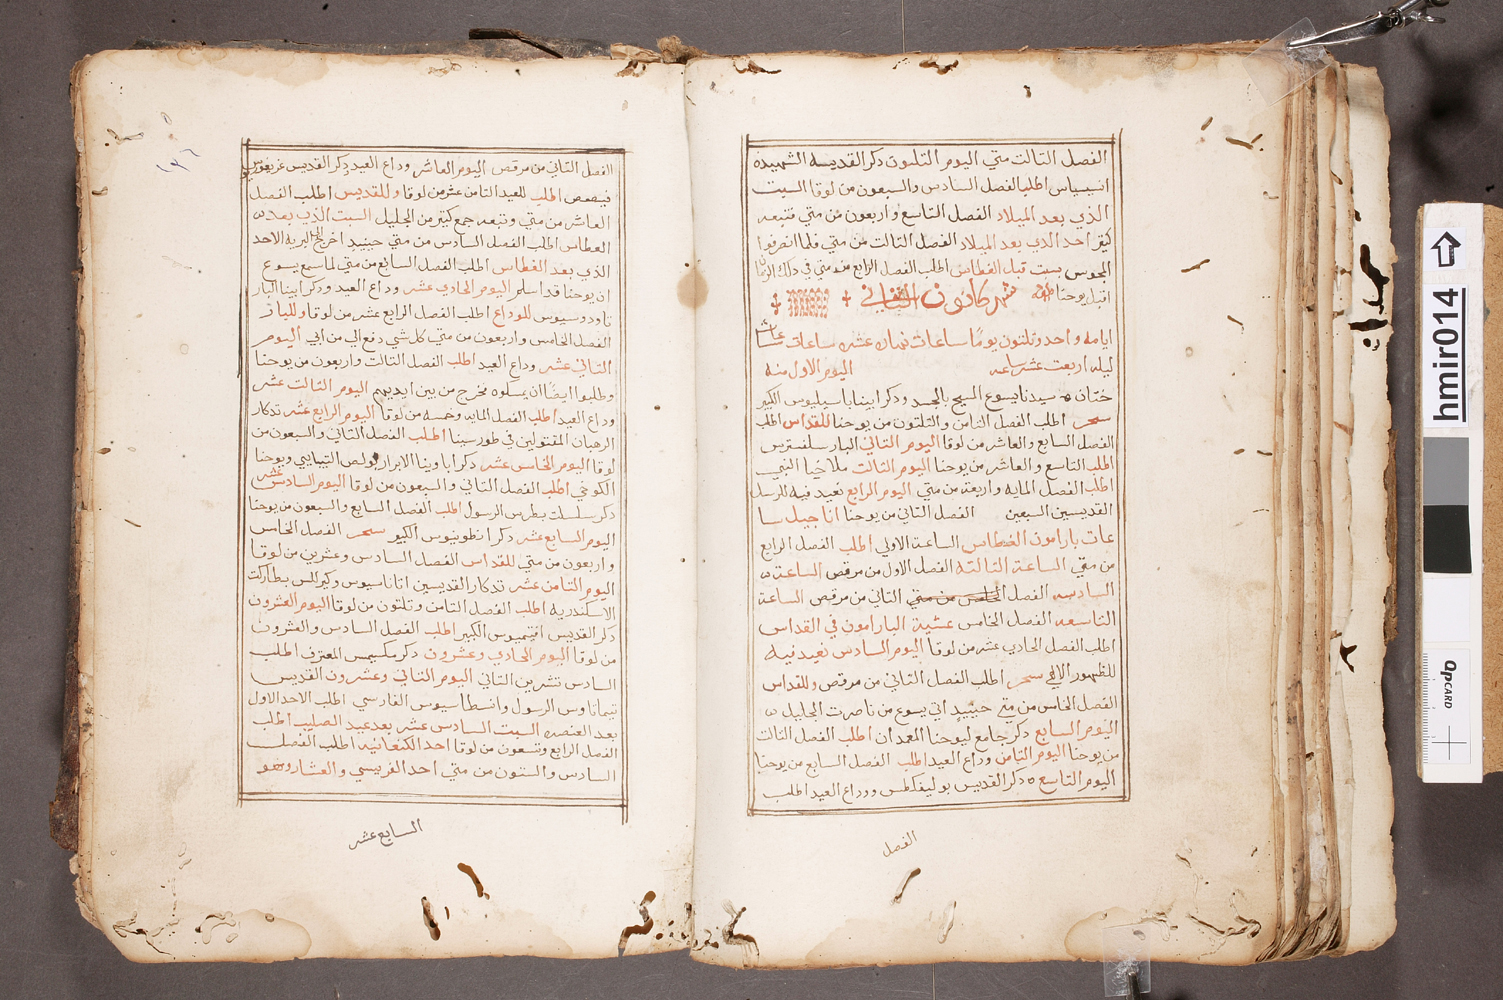 الفصل التالت متي اليوم التلتون ذكر القديسه الشهيده
انيسياس اطلب الفصل السادس والسبعون من لوقا السبت
الذي بعد الميلاد الفصل التاسع واربعون من متي فتبعه
كتير احد الذي بعد الميلاد الفصل التالت من متي فلما انصرفوا
المجوس سبت قبل الغطاس اطلب الفصل الرابع من متي في ذلك الزمان
اقبل يوحنا شهر كانون التاني
ايامه واحد وتلتون يومًا ساعات نهاره عشره ساعات
ليله اربعت عشر ساعه اليوم الاول منه
ختان سيدنا يسوع المسيح بالجسد وذكر ابينا باسيليوس الكبير
سحر اطلب الفصل التامن والتلتون من يوحنا للقداس اطلب
الفصل السابع والعاشر من لوقا اليوم التاني البار سلفسترس
اطلب التاسع والعاشر من يوحنا اليوم التالت ملاخيا النبي
اطلب الفصل المايه واربعة من متي اليوم الرابع نعيد فيه للرسل
القديسين السبعين الفصل التاني من يوحنا اناجيل سا
عات بارامون الغطاس الساعة الاولي اطلب الفصل الرابع
من متي الساعة التالته الفصل الاول من مرقص الساعة
السادسه الفصل الخامس من متي التاني من مرقص الساعة
التاسعه الفصل الخامس عشية البارامون في القداس
اطلب الفصل الحادي عشر من لوقا اليوم السادس نعيد فيه
للظهور الالاهي سحر اطلب الفصل التاني من مرقص وللقداس
الفصل الخامس من متي حينيذٍ اتي يسوع من ناصرت الجليل
اليوم السابع ذكر جامع ليوحنا المعمدان اطلب الفصل التالت
من يوحنا اليوم التامن وداع العيد اطلب الفصل السابع من يوحنا
اليوم التاسع ذكر القديس بوليفكطس ووداع العيد اطلب
الفصل
١٣٦
الفصل التاني من مرقص اليوم العاشر وداع العيد ذكر القديس غريغوريوس
نيصص اطلب للعيد التامن عشر من لوقا وللقديس اطلب الفصل
العاشر من متي وتبعه جمع كتير من الجليل السبت الذي بعد
الغطاس اطلب الفصل السادس من متي حينيذٍ اخرج الي البريه الاحد
الذي بعد الغطاس اطلب الفصل السابع من متي لما سمع يسوع
ان يوحنا قد اسلم اليوم الحادي عشر وداع العيد وذكر ابينا البار
تاودوسيوس للوداع اطلب الفصل الرابع عشر من لوقا وللبار
الفصل الخامس واربعون من متي كل شي دفع الي من ابي اليوم
التاني عشر وداع العيد اطلب الفصل التالت واربعون من يوحنا
وطلبوا ايضًا ان يمسكوه فخرج من بين ايديهم اليوم التالت عشر
وداع العيد اطلب الفصل المايه وخمسه من لوقا اليوم الرابع عشر تذكار
الرهبان المقتولين في طور سينا اطلب الفصل التاني والسبعون من
لوقا اليوم الخامس عشر ذكر اباوينا الابرار بولص التيبايسي ويوحنا
الكوخي اطلب الفصل التاني والسبعون من لوقا اليوم السادس عشر
ذكر سلسلت بطرس الرسول اطلب الفصل السابع والسبعون من يوحنا
اليوم السابع عشر ذكر انطونيوس الكبير سحر الفصل الخامس
واربعون من متي للقداس الفصل السادس وعشرين من لوقا
اليوم التامن عشر تذكار القديسين اتاناسيوس وكيرللس بطاركت
الاسكندريه اطلب الفصل التامن وتلتون من لوقا اليوم العشرون
ذكر القديس افتيميوس الكبير اطلب الفصل السادس والعشرون
من لوقا اليوم الحادي وعشرون ذكر مكسيمس المعترف اطلب
السادس تشرين التاني اليوم التاني وعشرون القديس
تيماتاوس الرسول وانسطاسيوس الفارسي اطلب الاحد الاول
بعد العنصره السبت السادس عشر بعد عيد الصليب اطلب
الفصل الرابع وتسعون من لوقا احد الكنعانيه اطلب الفصل
السادس والستون من متي احد الفريسي والعشار وهو
السابع عشر
hmir014
QPCARD